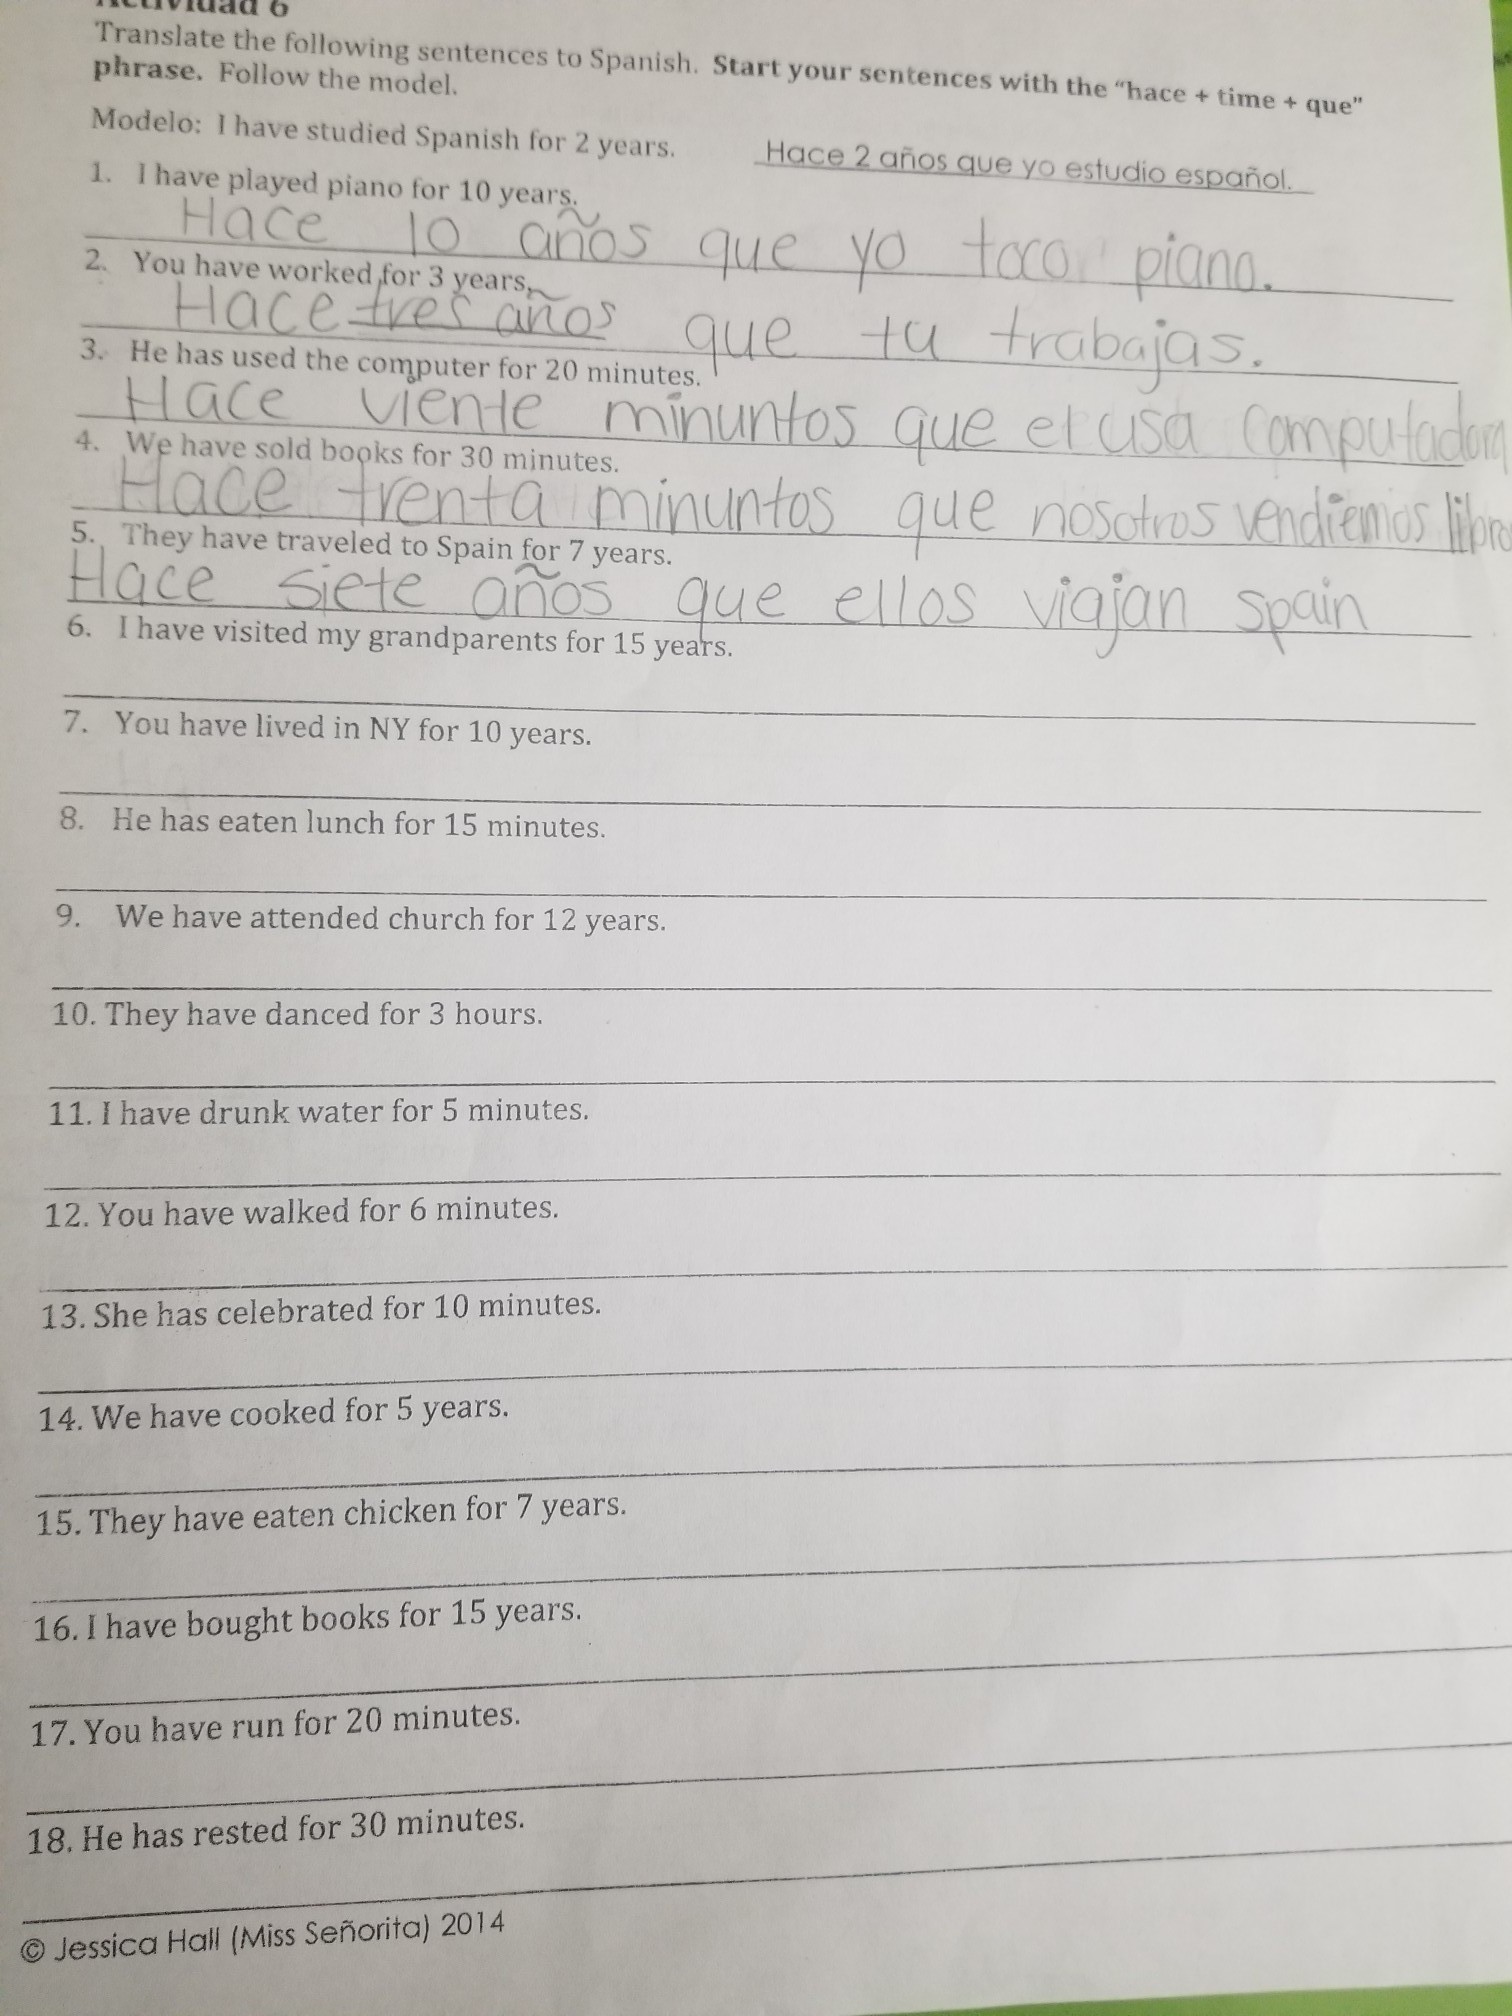 Actividad 6
Translate the following sentences to Spanish. Start your sentences with the "hace + time + que"
phrase. Follow the model.
Modelo: I have studied Spanish for 2 years. Hace 2 años que yo estudio español.
1. I have played piano for 10 years.
Hace 10 años que yo toco piano.
2. You have worked for 3 years.
Hace tres años que tu trabajas.
3. He has used the computer for 20 minutes.
Hace viente minuntos que el usa computadora
4. We have sold books for 30 minutes.
Hace trenta minuntos que nosotros vendiemos libro
5. They have traveled to Spain for 7 years.
Hace siete años que ellos viajan spain
6. I have visited my grandparents for 15 years.
7. You have lived in NY for 10 years.
8. He has eaten lunch for 15 minutes.
9. We have attended church for 12 years.
10. They have danced for 3 hours.
11. I have drunk water for 5 minutes.
12. You have walked for 6 minutes.
13. She has celebrated for 10 minutes.
14. We have cooked for 5 years.
15. They have eaten chicken for 7 years.
16. I have bought books for 15 years.
17. You have run for 20 minutes.
18. He has rested for 30 minutes.
© Jessica Hall (Miss Señorita) 2014